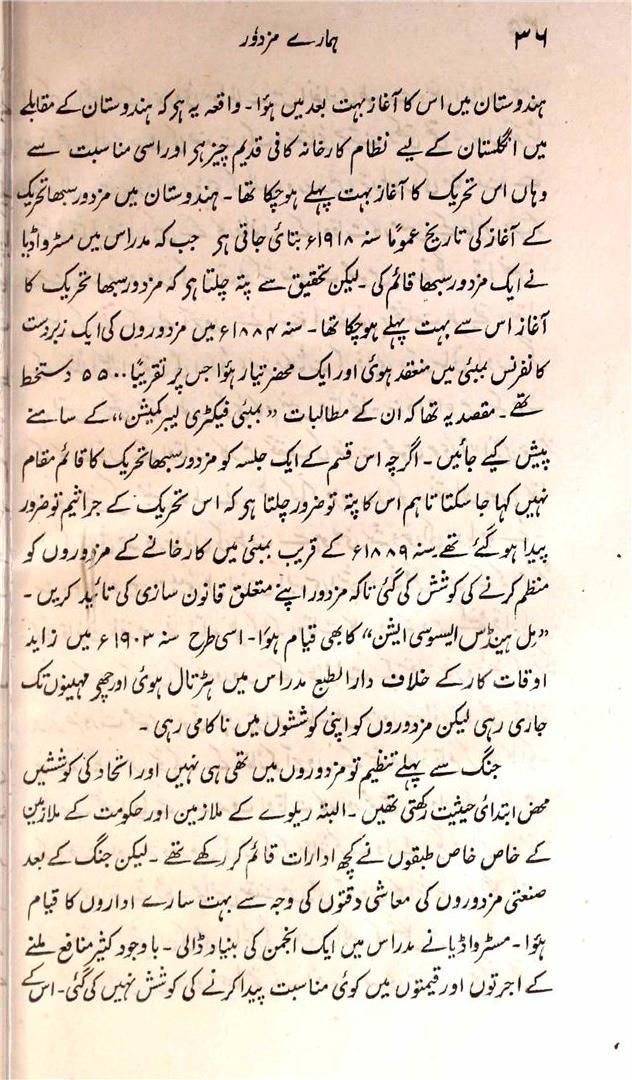 ۳۶
ہمارے مزدؤر
ہندوستان میں اس کا آغاز بہت بعد میں ہؤا۔ واقعہ یہ ہو کہ ہندوستان کے مقابلے
میں انگلستان کے لیے نظام کارخانہ کافی قدیم چیز ہر اور اسی مناسبت سے
وہاں اس تحریک کا آغاز بہت پہلے ہوچکا تھا۔ ہندوستان میں مزدور سبھا تحریک
کے آغاز کی تاریخ عمومًا سنہ ۱۹۱۸ء بتائی جاتی ہر جب کہ مدراس میں مسٹر واڈیا
نے ایک مزدور سبھا قائم کی۔ لیکن تحقیق سے پتہ چلتا ہر کہ مزدور سبھا تحریک کا
آغاز اس سے بہت پہلے ہوچکا تھا۔ سنہ ۱۸۸۴ء میں مزدوروں کی ایک زبردست
کانفرنس بمبئی میں منعقد ہوئی اور ایک محضر تیار ہؤا جس پر تقریبًا ۵۵۰۰ دستخط
تھے۔ مقصد یہ تھا کہ ان کے مطالبات ”بمبئی فیکٹری لیبر کمیشن“ کے سامنے
پیش کیے جائیں۔ اگرچہ اس قسم کے ایک جلسہ کو مزدور سبھا تحریک کا قائم مقام
نہیں کہا جا سکتا تاہم اس کا پتہ تو ضرور چلتا ہر کہ اس تحریک کے جراثیم تو ضرور
پیدا ہوگئے تھے۔ سنہ ۱۸۸۹ء کے قریب بمبئی میں کارخانے کے مزدوروں کو
منظم کرنے کی کوشش کی گئی تاکہ مزدور اپنے متعلق قانون سازی کی تائید کریں۔
”مِل ہینڈس ایسوسی ایشن“ کا بھی قیام ہؤا۔ اسی طرح سنہ ۱۹۰۳ء میں زاید
اوقات کار کے خلاف دارالطبع مدراس میں ہڑتال ہوئی اور چھ مہینوں تک
جاری رہی لیکن مزدوروں کو اپنی کوششوں میں ناکامی رہی۔
جنگ سے پہلے تنظیم تو مزدوروں میں تھی ہی نہیں اور اتحاد کی کوششیں
محض ابتدائی حیثیت رکھتی تھیں۔ البتہ ریلوے کے ملازمین اور حکومت کے ملازمین
کے خاص خاص طبقوں نے کچھ ادارات قائم کر رکھے تھے۔ لیکن جنگ کے بعد
صنعتی مزدوروں کی معاشی دقتوں کی وجہ سے بہت سارے اداروں کا قیام
ہؤا۔ مسٹر واڈیا نے مدراس میں ایک انجمن کی بنیاد ڈالی۔ باوجود کثیر منافع ملنے
کے اجرتوں اور قیمتوں میں کوئی مناسبت پیدا کرنے کی کوشش نہیں کی گئی۔ اس کے